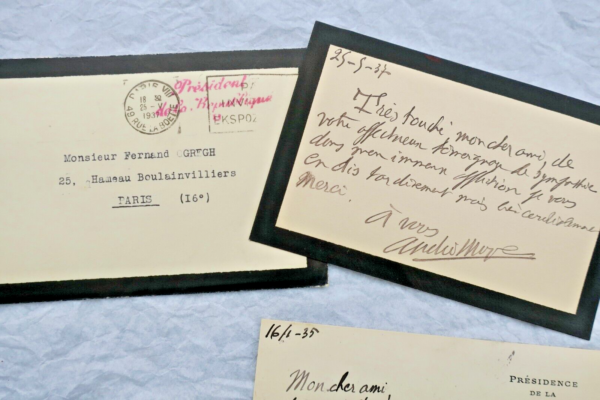 PARIS VIII
18 30
25
193
48 RUE LA BOETIE
Président
de la République
EXPO
Monsieur Fernand GREGH
25, Hameau Boulainvilliers
PARIS (16e)
25-5-37
Très touché, mon cher ami, de
votre affectueux témoignage de sympathie
dans mon immense affliction je vous
en dis tardivement mais bien cordialement
merci.
à vous
16/1-35
Mon cher ami
PRÉSIDENCE
DE LA